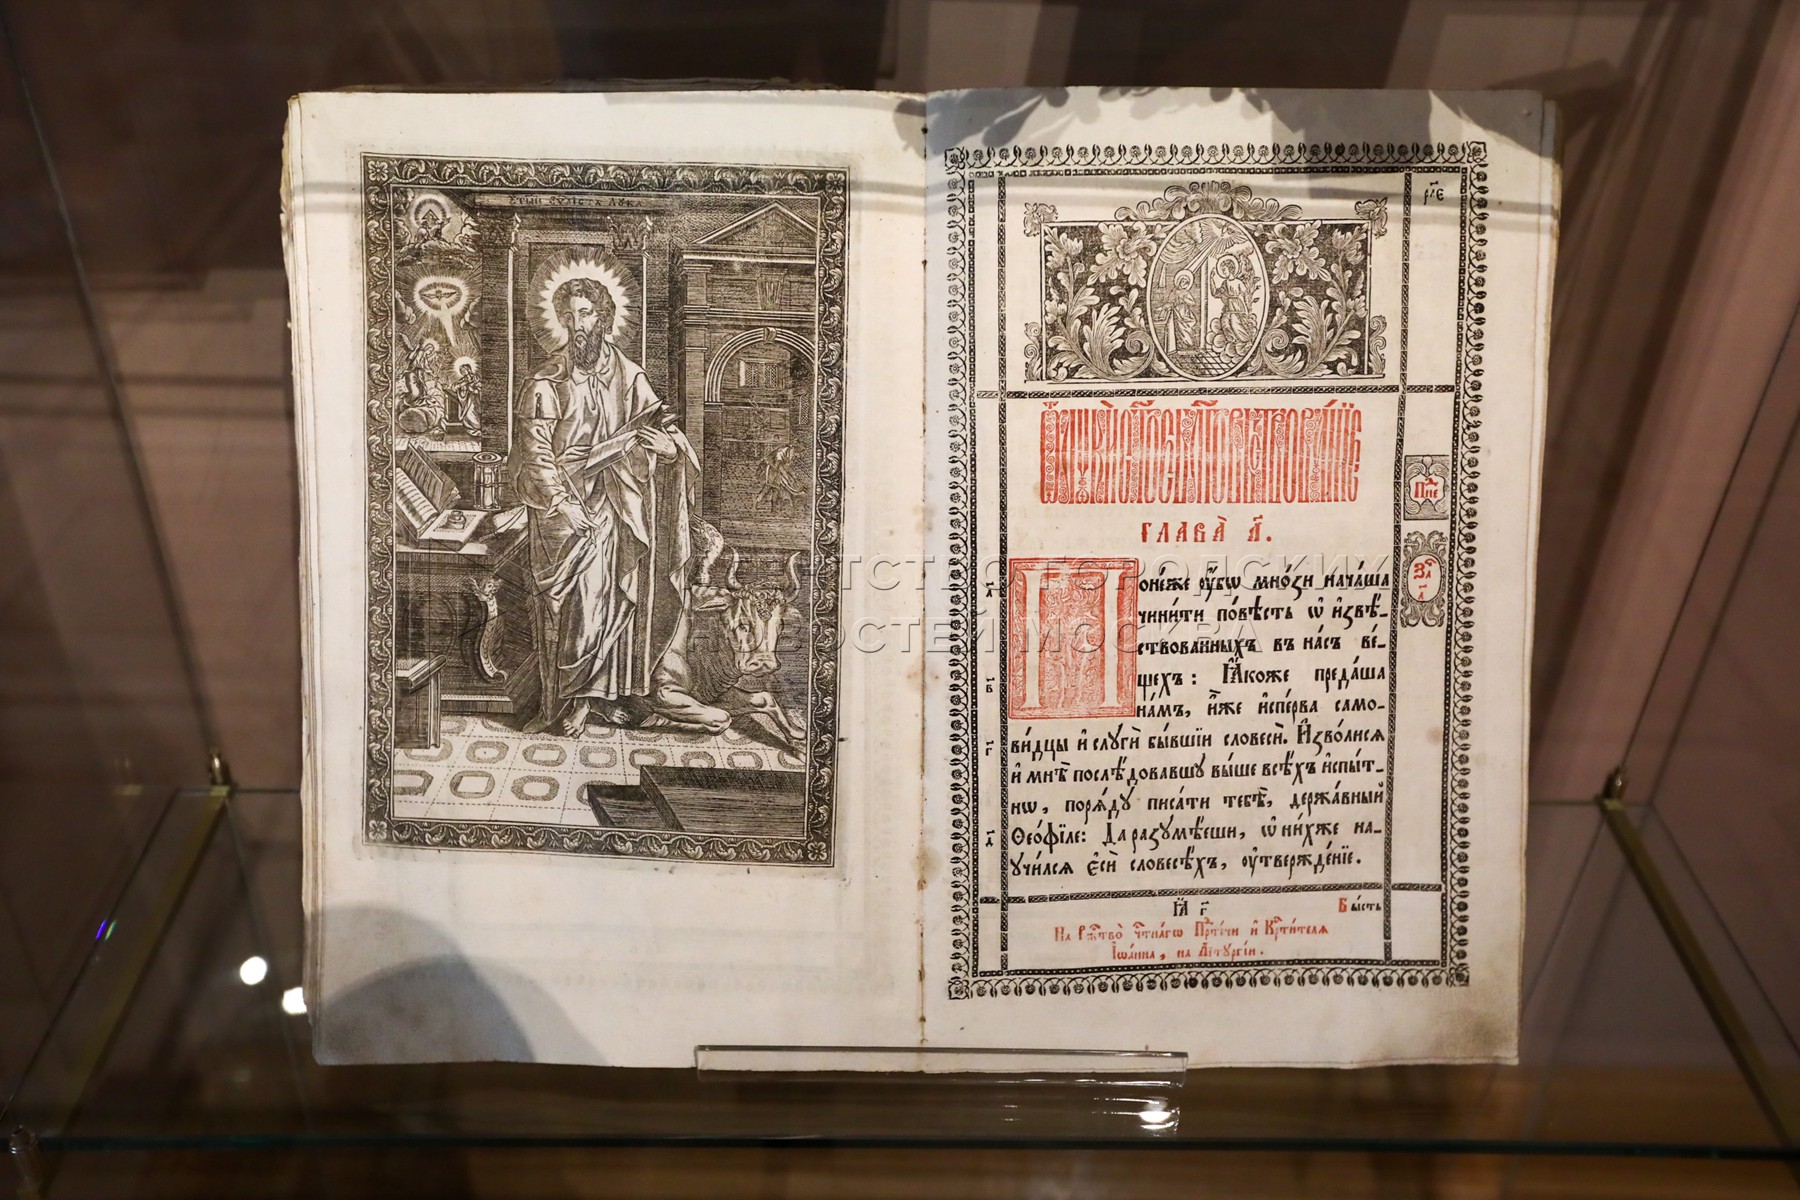 С҃ТЫЙ ЕѴ҃ЛІСТА ЛУКА
W W
W
р҃л҃є
Ѿ Лꙋкѝ ст҃ое бл҃говѣствова́нїе
ГЛАВА̀ А҃.
Поне́же ᲂу҆́бѡ мно́зи нача́ша
чини́ти по́вѣсть ѡ҆ и҆звѣ-
ствованныхъ въ на́съ ве́-
щехъ : Ꙗ҆́коже преда́ша
на́мъ, и҆̀же и҆спе́рва само-
ви́дцы и҆ слꙋгѝ бы́вшїи словесѐ. И҆зво́лисѧ
и҆ мнѣ̀ послѣ́довавшꙋ вы́ше всѣ̑хъ и҆спы́т-
нѡ, порѧ́дꙋ писа́ти тебѣ̀, держа́вный
Ѳео́філе: Да разꙋмѣ́еши, ѡ҆ ни́хже на-
ꙋчи́лсѧ є҆сѝ словесѣ́хъ, ᲂу҆твержде́нїе.
Бы́сть
На Ржⷭ҇тво̀ чⷭ҇тна́гѡ Прⷣте́чи и҆ Крⷭ҇ти́телѧ
І҆ѡа́нна, на Лїтꙋргі́и.
АГЕНТСТВО ГОРОДСКИХ
НОВОСТЕЙ МОСКВА